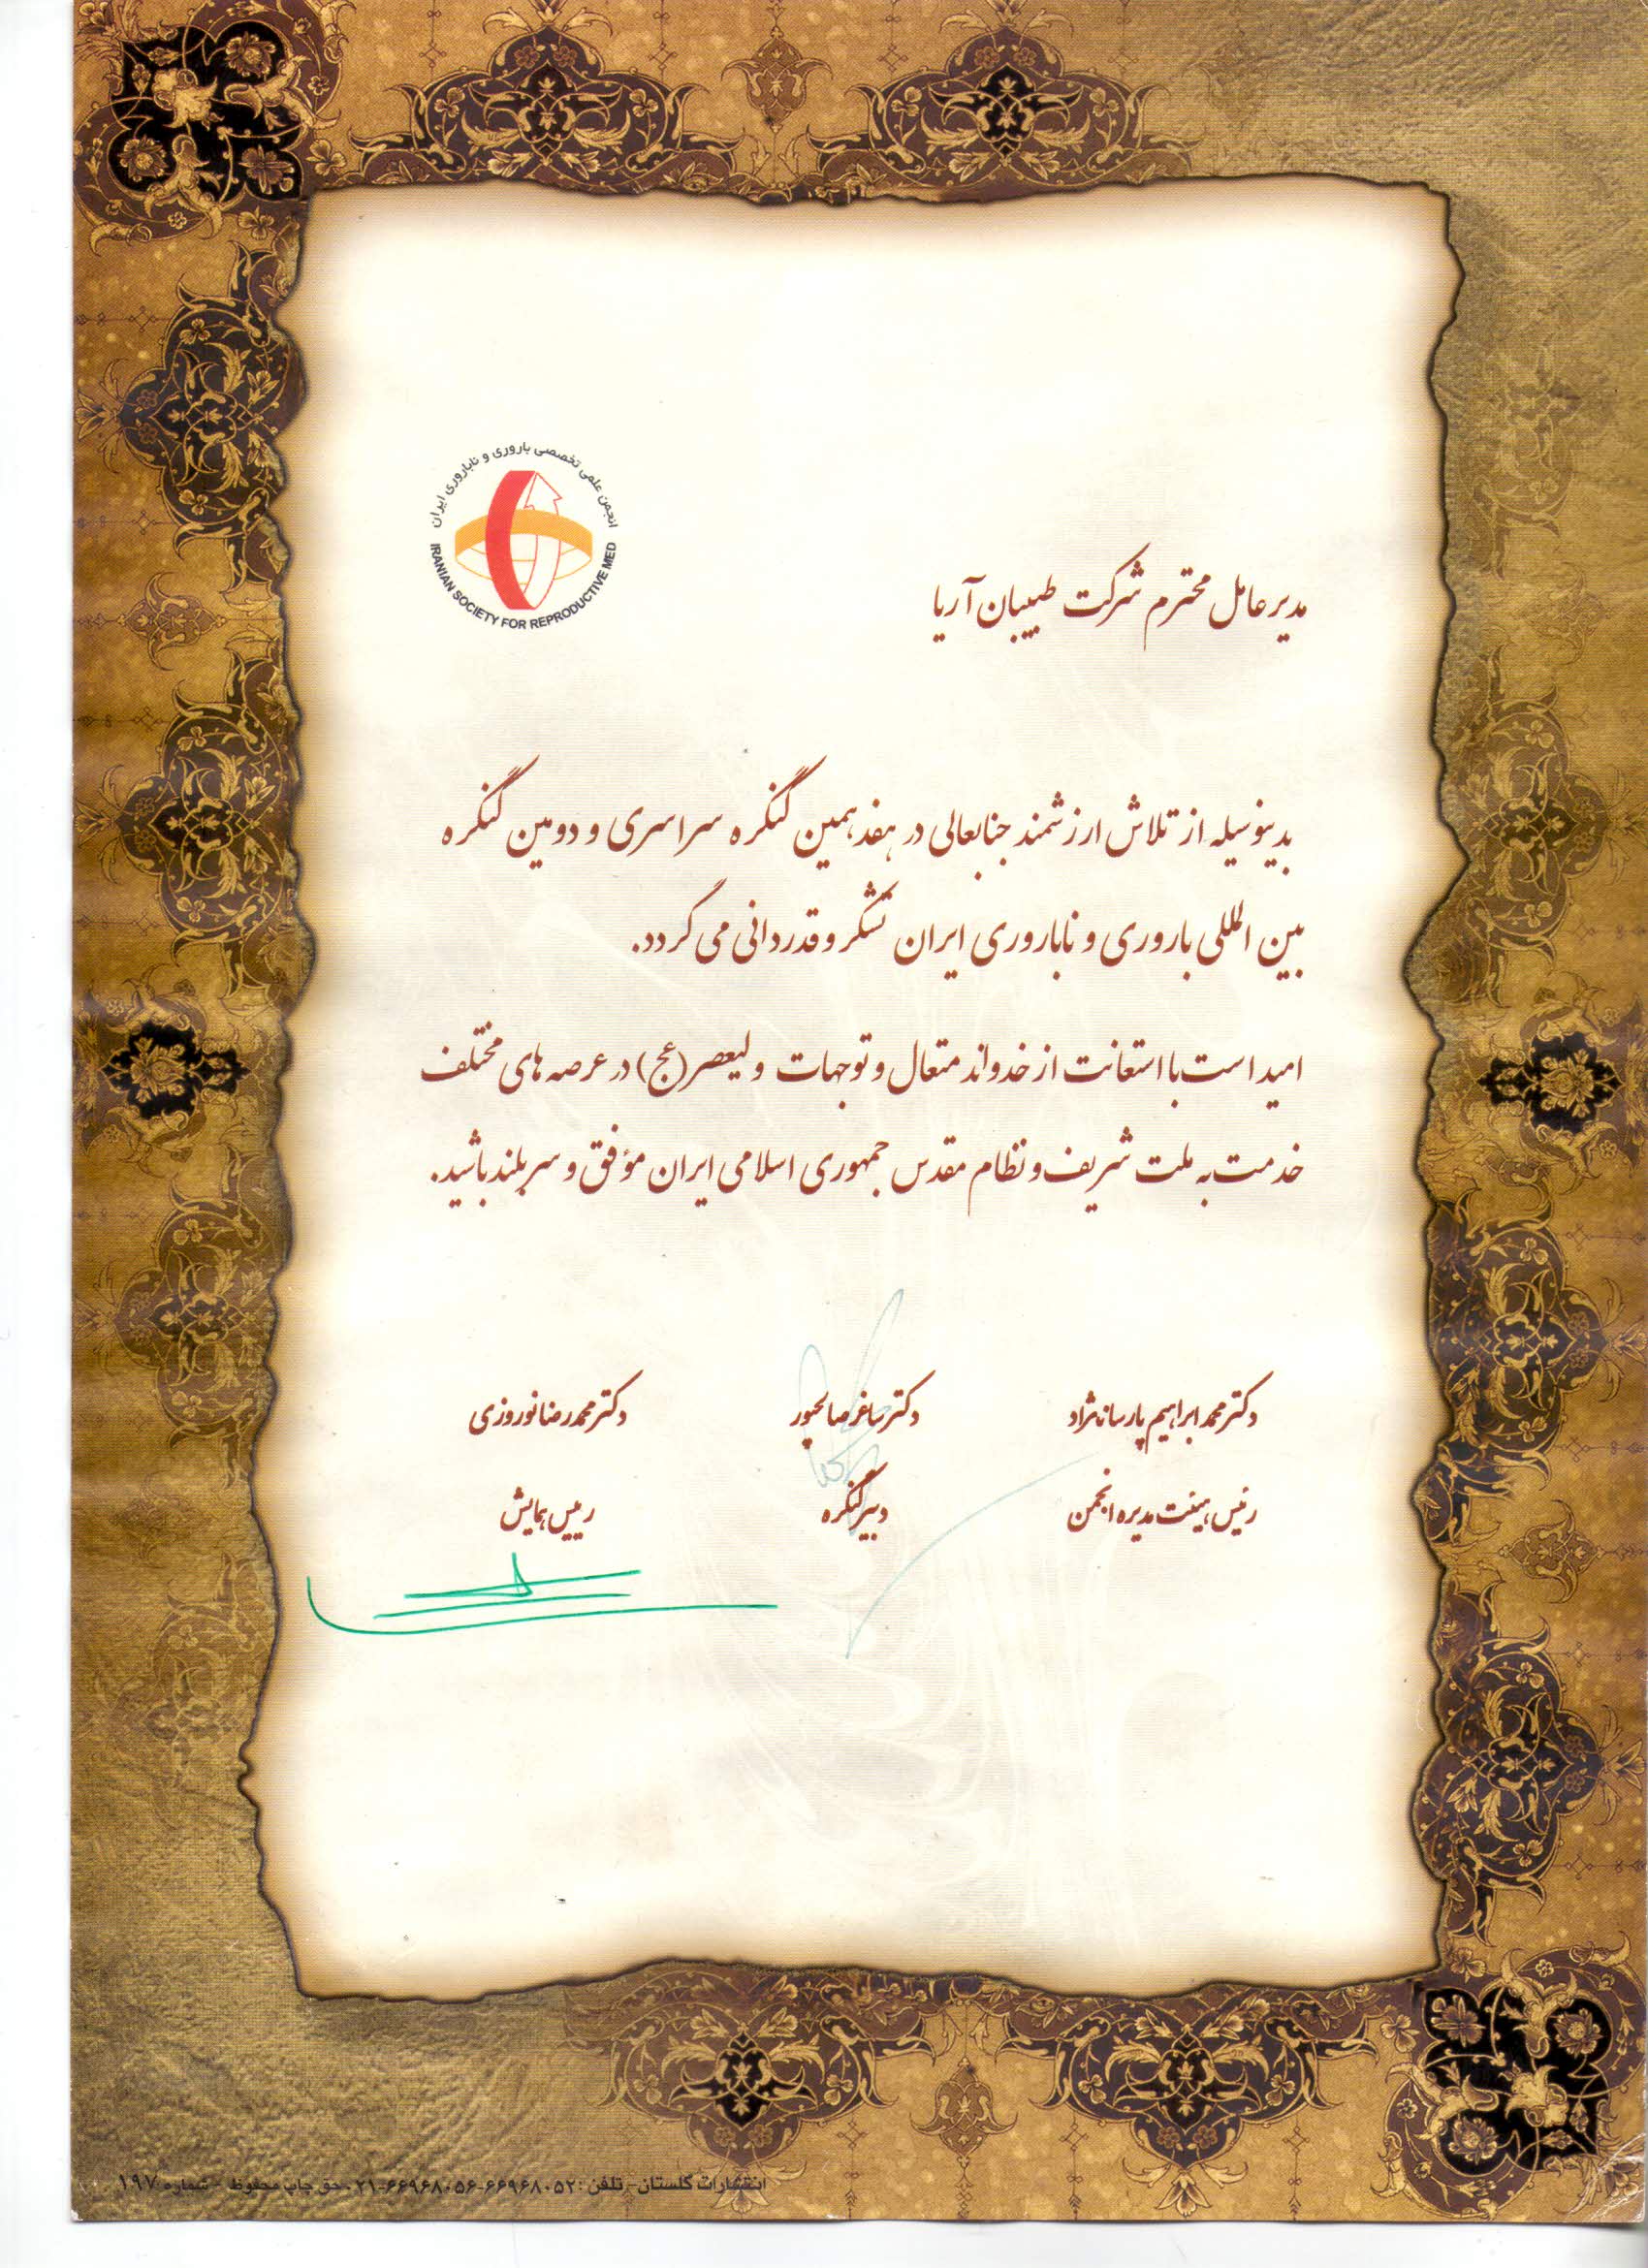 انجمن علمی تخصصی باروری و ناباروری ایران
IRANIAN SOCIETY FOR REPRODUCTIVE MED
مدیر عامل محترم شرکت طبیبان آریا
بدینوسیله از تلاش ارزشمند جنابعالی در هفدهمین کنگره سراسری و دومین کنگره
بین المللی باروری و ناباروری ایران تشکر و قدردانی می گردد.
امید است با استعانت از خدواند متعال و توجهات ولیعصر (عج) در عرصه های مختلف
خدمت به ملت شریف و نظام مقدس جمهوری اسلامی ایران مؤفق و سربلند باشید.
دکتر محمد ابراهیم پارسانژاد
دکتر ساغر صالحپور
دکتر محمدرضا نوروزی
رئیس هیئت مدیره انجمن
دبیر کنگره
رییس همایش
انتشارات گلستان - تلفن: ۶۶۹۶۸۰۵۲-۶۶۹۶۸۰۵۶-۰۲۱ حق چاپ محفوظ - شماره ۱۹۷